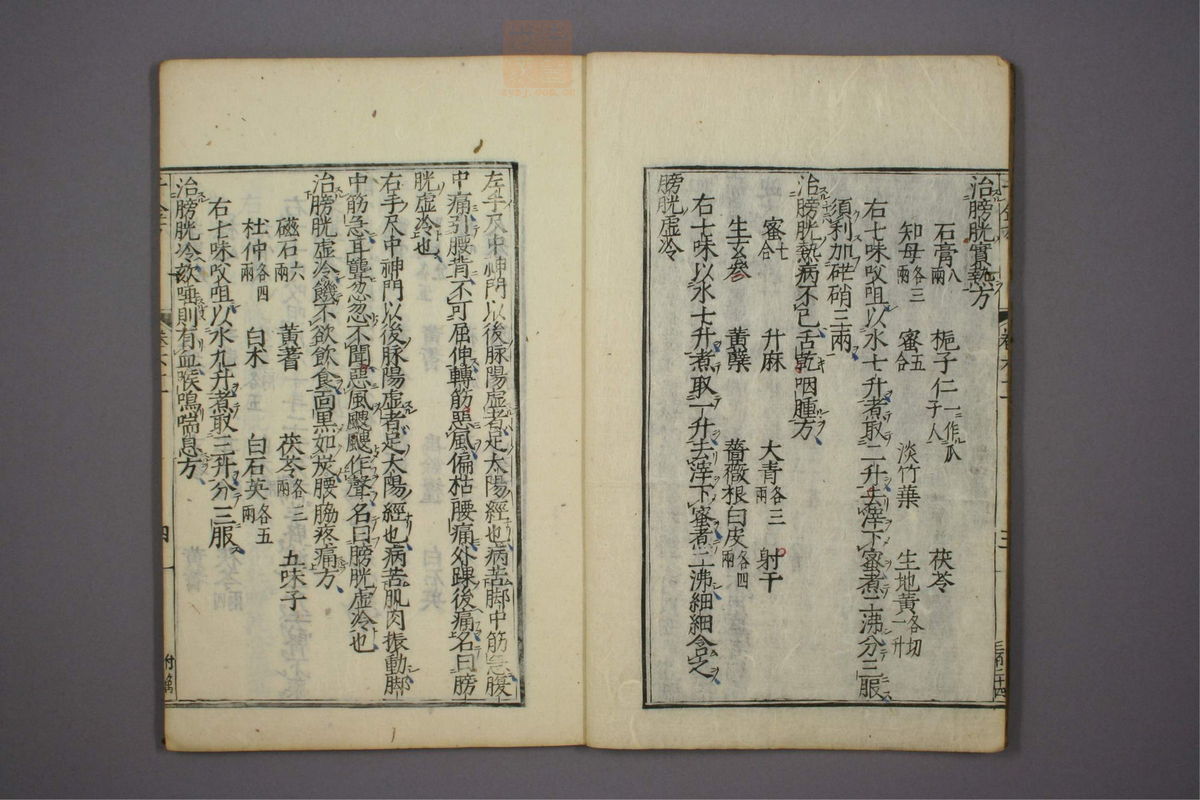 治膀胱實熱方
石膏八兩 梔子仁一作瓜子人 茯苓
知母各三兩 蜜五合 淡竹葉 生地黃各切一升
右七味㕮咀以水七升煮取二升去滓下蜜煮二沸分三服
須利加芒硝三兩
治膀胱熱病不已舌乾咽腫方
蜜七合 升麻 大青各三兩 射干
生玄參 黃蘗 薔薇根白皮各四兩
右七味以水七升煮取一升去滓下蜜煮二沸細細含之
膀胱虛冷
左手尺中神門以後脉陽虛者足太陽經也病苦脚中筋急腹
中痛引腰背不可屈伸轉筋惡風偏枯腰痛外踝後痛名曰膀
胱虛冷也
右手尺中神門以後脉陽虛者足太陽經也病苦肌肉振動脚
中筋急耳聾忽忽不聞惡風颼颼作聲名曰膀胱虛冷也
治膀胱虛冷饑不欲飲食面黑如炭腰脇疼痛方
磁石六兩 黃蓍 茯苓各三兩 五味子
杜仲各四兩 白朮 白石英各五兩
右七味㕮咀以水九升煮取三升分三服
治膀胱冷欬唾則有血喉鳴喘息方
四
三